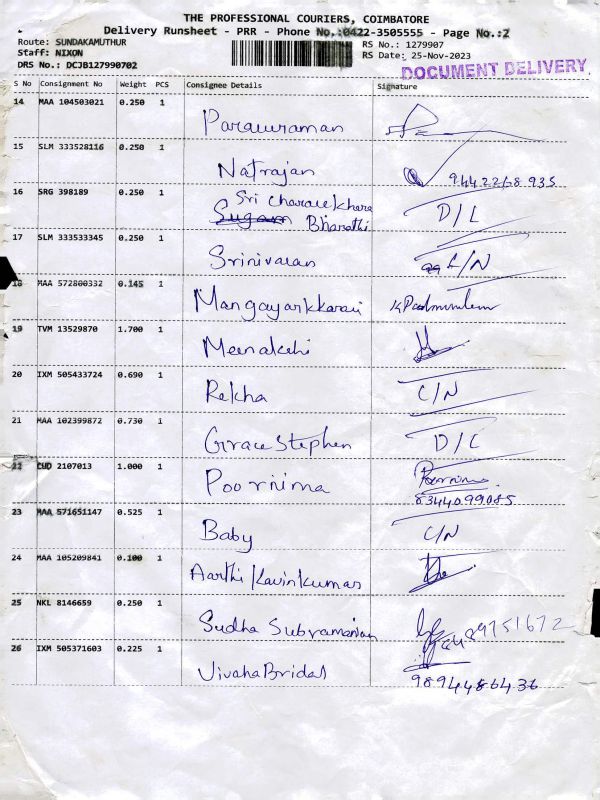 THE PROFESSIONAL COURIERS, COIMBATORE
Delivery Runsheet - PRR - Phone No.:0422-3505555 - Page No.:2
Route: SUNDAKAMUTHUR
RS No.: 1279907
Staff: NIXON
RS Date: 25-Nov-2023
DRS No.: DCJB127990702
DOCUMENT DELIVERY
S No Consignment No Weight PCS Consignee Details Signature
14 MAA 104503021 0.250 1
Parasuraman
15 SLM 333528116 0.250 1
Natrajan
16 SRG 398189 0.250 1
Sri
Bharathi D/L
17 SLM 333533345 0.250 1
Srinivasan L/N
18 MAA 572800332 0.145 1
Mangayarkkarasi
19 TVM 13529870 1.700 1
Meenakshi
20 IXM 505433724 0.690 1
Rekha C/N
21 MAA 102399872 0.730 1
Grace Stephen D/L
22 CUD 2107013 1.000 1
Poornima Poornima
8344099085
23 MAA 571651147 0.525 1
Baby C/N
24 MAA 105209841 0.100 1
Aarthi Kavinkumar
25 NKL 8146659 0.250 1
Sudha Subramanian
26 IXM 505371603 0.225 1
Vivaha Bridal
9894486436